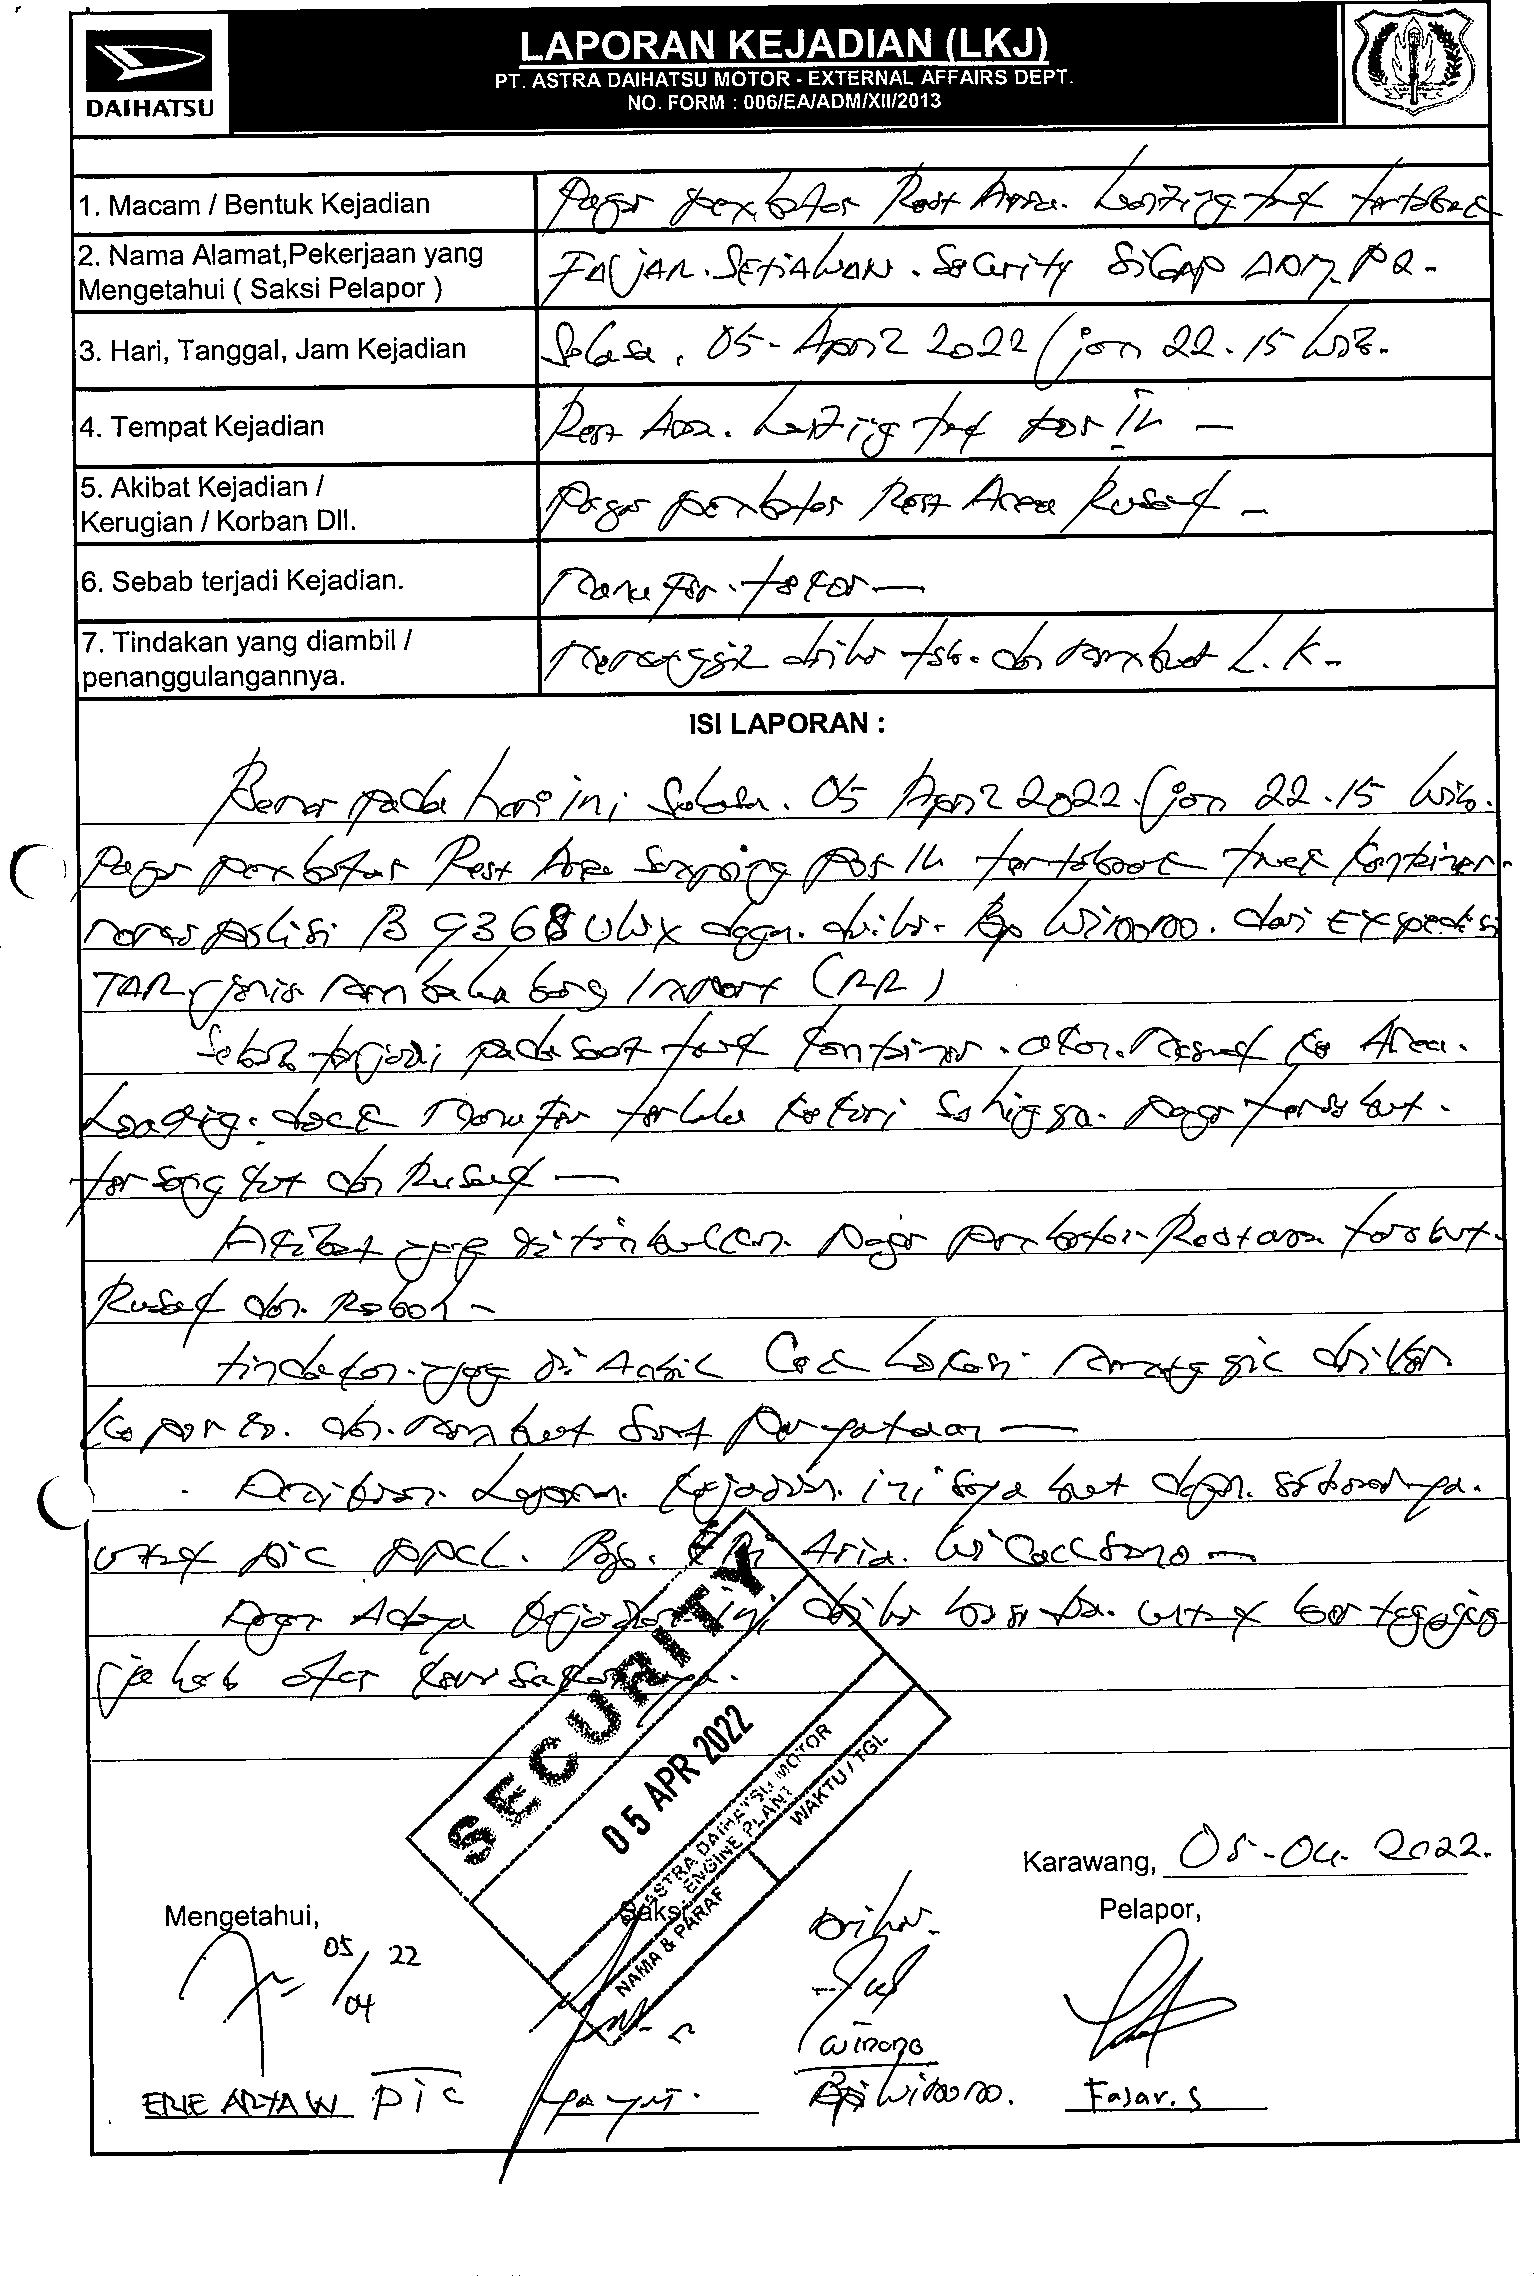 DAIHATSU
LAPORAN KEJADIAN (LKJ)
PT. ASTRA DAIHATSU MOTOR - EXTERNAL AFFAIRS DEPT.
NO. FORM : 006/EA/ADM/XII/2013
1. Macam / Bentuk Kejadian
Pagar pembatas Rest Area. tertabrak
2. Nama Alamat,Pekerjaan yang
Mengetahui ( Saksi Pelapor )
FAJAR. SETIAWAN. Security SIGAP ADM.
3. Hari, Tanggal, Jam Kejadian
Selasa, 05 - April 2022 / jam 22.15 Wib.
4. Tempat Kejadian
Rest Area.
5. Akibat Kejadian /
Kerugian / Korban Dll.
Pagar pembatas Rest Area Rusak -
6. Sebab terjadi Kejadian.
7. Tindakan yang diambil /
penanggulangannya.
driver tsb. dan membuat L.K -
ISI LAPORAN :
Benar pada hari ini Selasa. 05 April 2022. / jam 22.15 Wib.
Pagar pembatas Rest Area tertabrak truck Kontainer.
nomor polisi B 9368 UWX dgn. driver. Bp Winono. dari Expedisi
TAR
Sebab terjadi pada saat truk kontainer. akan. masuk ke Area.
Loading. dock terlalu kekiri Sehingga. pagar tersebut.
tersangkut dan Rusak —
Akibat yang ditimbulkan pagar pembatas Restarea tersebut.
Rusak dan. Roboh -
tindakan. yang di Ambil Cek Lokasi. driver
dan. membuat Surat pernyataan —
Demikian. Laporan. Kejadian. ini saya buat dgn. sebenarnya.
untuk pic Aria. Wicaksono —
Dgn Adanya Kejadian ini driver bersedia. untuk bertanggung
jawab atas kerusakannya.
SECURITY
05 APR 2022
ASTRA DAIHATSU MOTOR
ENGINE PLANT
WAKTU / TGL
NAMA & PARAF
Karawang, 05-04-2022.
Mengetahui,
Saksi
Driver.
Pelapor,
05/04 22
Winono
ERIE ARYA W PIC
Bp Winono.
Fajar. S